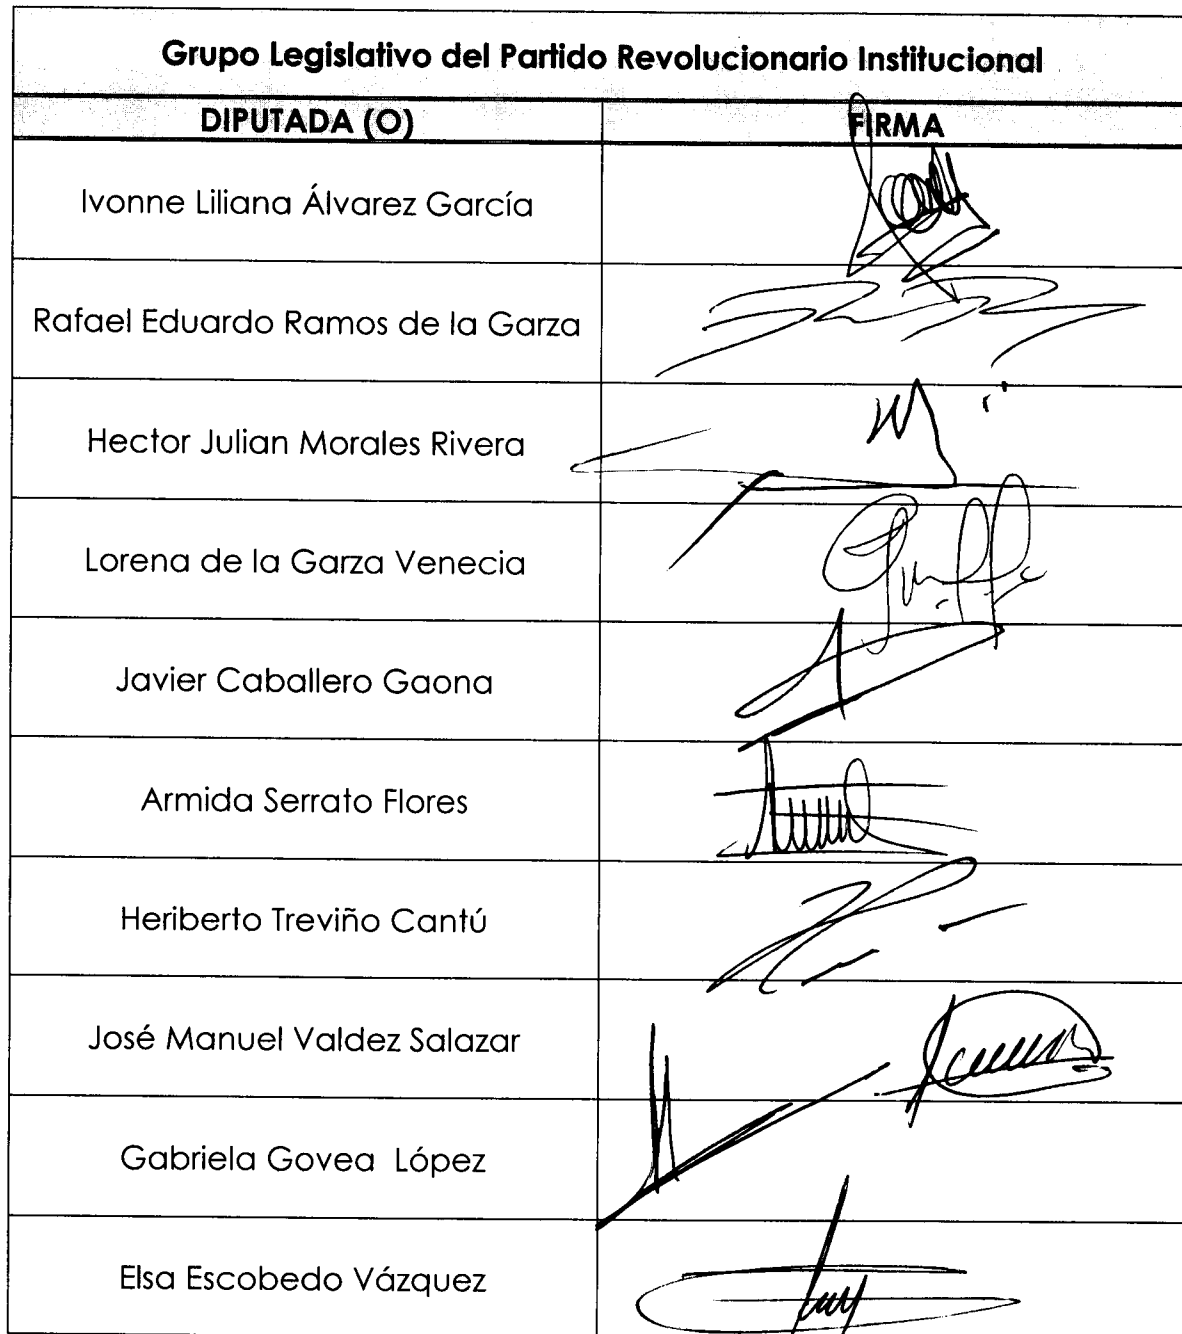 Grupo Legislativo del Partido Revolucionario Institucional
DIPUTADA (O) FIRMA
Ivonne Liliana Álvarez García
Rafael Eduardo Ramos de la Garza
Hector Julian Morales Rivera
Lorena de la Garza Venecia
Javier Caballero Gaona
Armida Serrato Flores
Heriberto Treviño Cantú
José Manuel Valdez Salazar
Gabriela Govea  López
Elsa Escobedo Vázquez